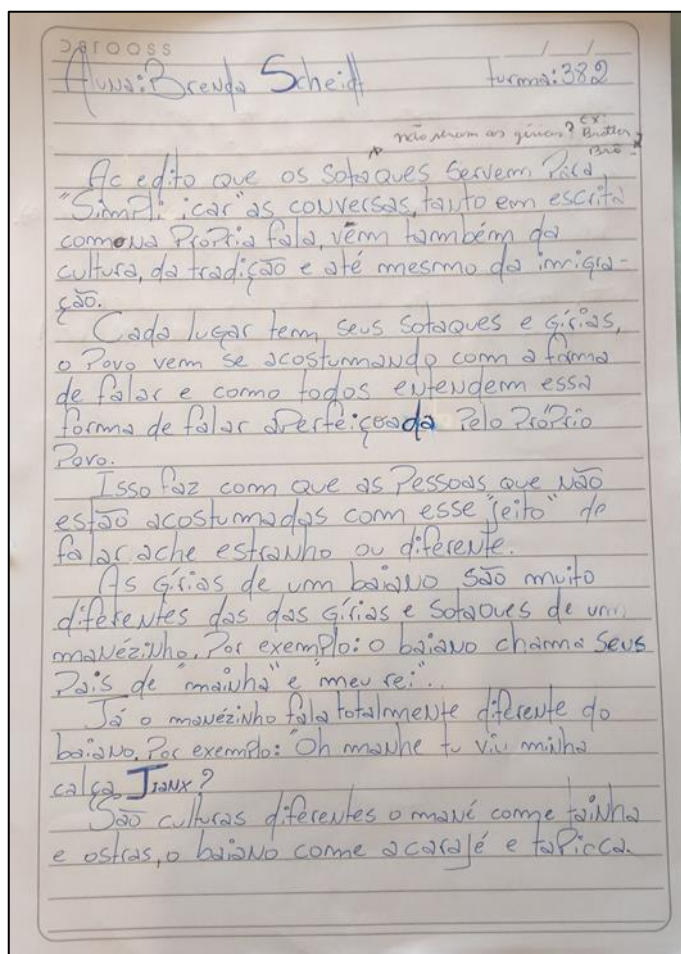 / /
Aluna: Brenda Scheidt turma: 382
não seriam as gírias? Ex: Brother
Bro
Ac edito que os sotaques servem Para
"Simpli icar" as conversas, tanto em escrita
como na Própria fala, vêm também da
cultura, da tradição e até mesmo da imigra-
ção.
Cada lugar tem seus sotaques e gírias,
o Povo vem se acostumando com a forma
de falar e como todos entendem essa
forma de falar aperfeiçoada Pelo Próprio
Povo.
Isso faz com que as Pessoas que não
estão acostumadas com esse "jeito" de
falar ache estranho ou diferente.
As gírias de um baiano são muito
diferentes das das gírias e Sotaques de um
manézinho. Por exemplo: o baiano chama seus
Pais de "mainha" e "meu rei".
Já o manézinho fala totalmente diferente do
baiano. Por exemplo: "Oh manhe tu viu minha
calça Jianx?
São culturas diferentes o mané come tainha
e ostras, o baiano come acarajé e taPicca.